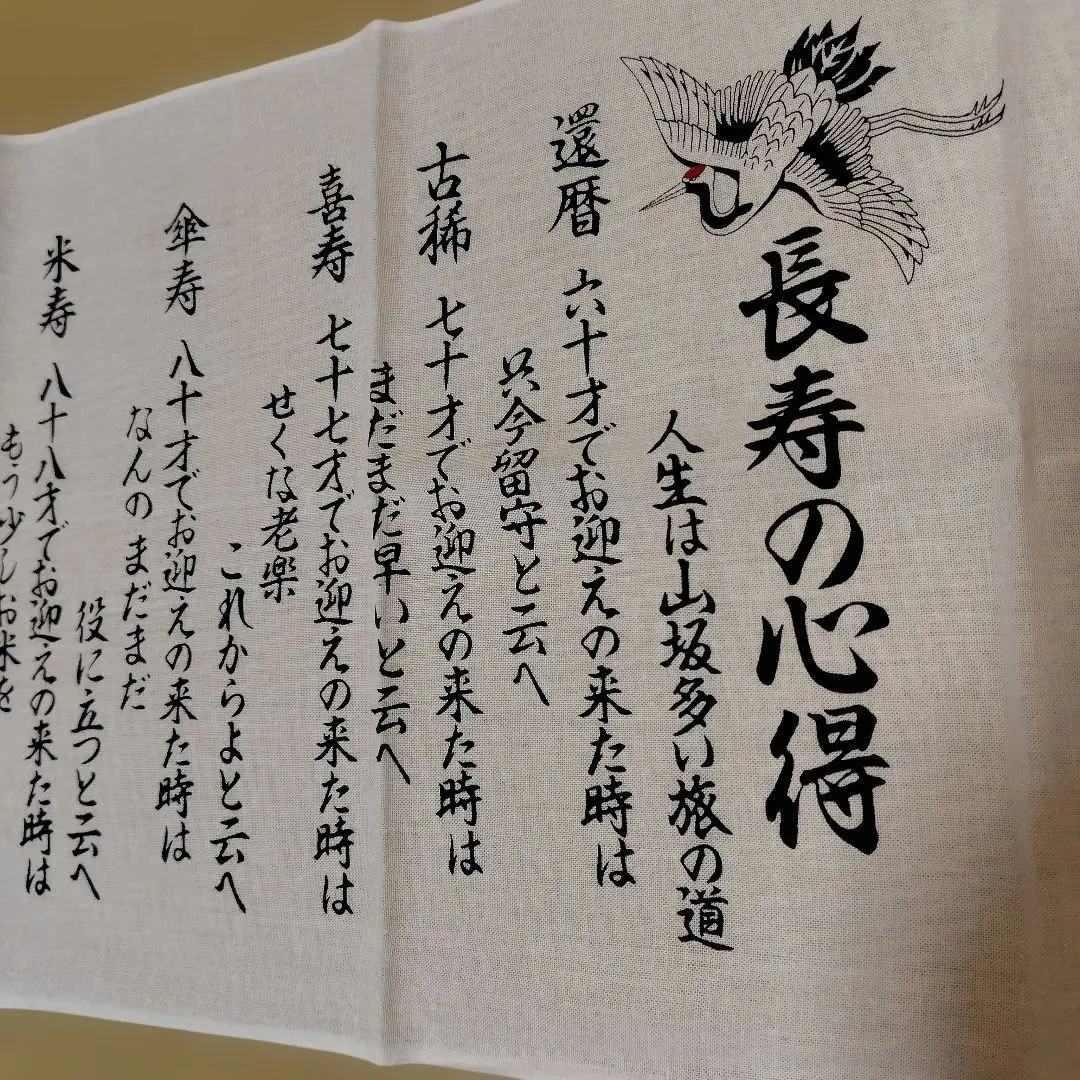 長寿の心得
人生は山坂多い旅の道
還暦 六十才でお迎えの来た時は
只今留守と云へ
古稀 七十才でお迎えの来た時は
まだまだ早いと云へ
喜寿 七十七才でお迎えの来た時は
せくな老楽
これからよと云へ
傘寿 八十才でお迎えの来た時は
なんのまだまだ
役に立つと云へ
米寿 八十八才でお迎えの来た時は
もう少しお米を